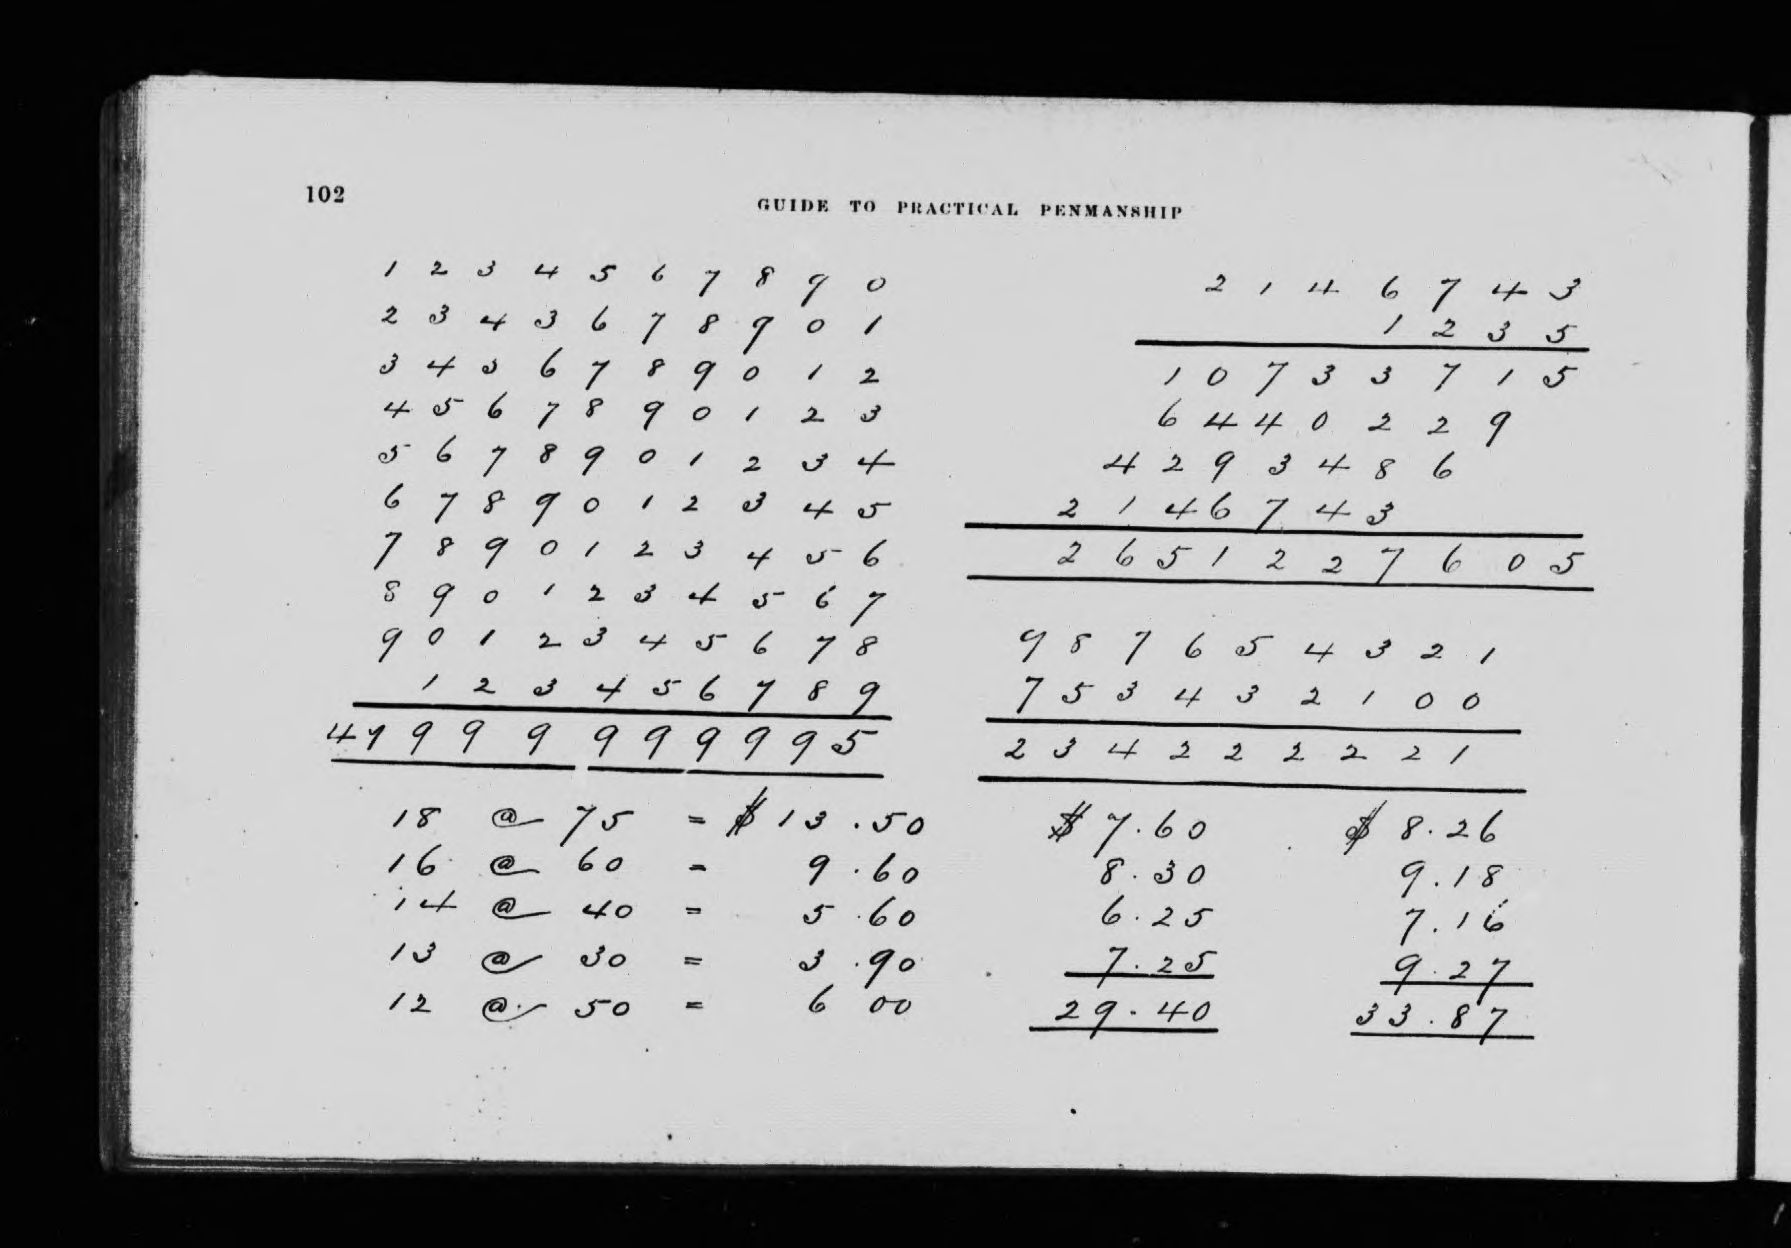 102
GUIDE TO PRACTICAL PENMANSHIP
1 2 3 4 5 6 7 8 9 0
2 3 4 3 6 7 8 9 0 1
3 4 5 6 7 8 9 0 1 2
4 5 6 7 8 9 0 1 2 3
5 6 7 8 9 0 1 2 3 4
6 7 8 9 0 1 2 3 4 5
7 8 9 0 1 2 3 4 5 6
8 9 0 1 2 3 4 5 6 7
9 0 1 2 3 4 5 6 7 8
1 2 3 4 5 6 7 8 9
4 9 9 9 9 9 9 9 9 9 5
2 1 4 6 7 4 3
1 2 3 5
1 0 7 3 3 7 1 5
6 4 4 0 2 2 9
4 2 9 3 4 8 6
2 1 4 6 7 4 3
2 6 5 1 2 2 7 6 0 5
9 8 7 6 5 4 3 2 1
7 5 3 4 3 2 1 0 0
2 3 4 2 2 2 2 2 1
18 @ 75 = $ 13.50
16 @ 60 = 9.60
14 @ 40 = 5.60
13 @ 30 = 3.90
12 @ 50 = 6 00
$ 7.60
8.30
6.25
7.25
29.40
$ 8.26
9.18
7.16
9.27
33.87